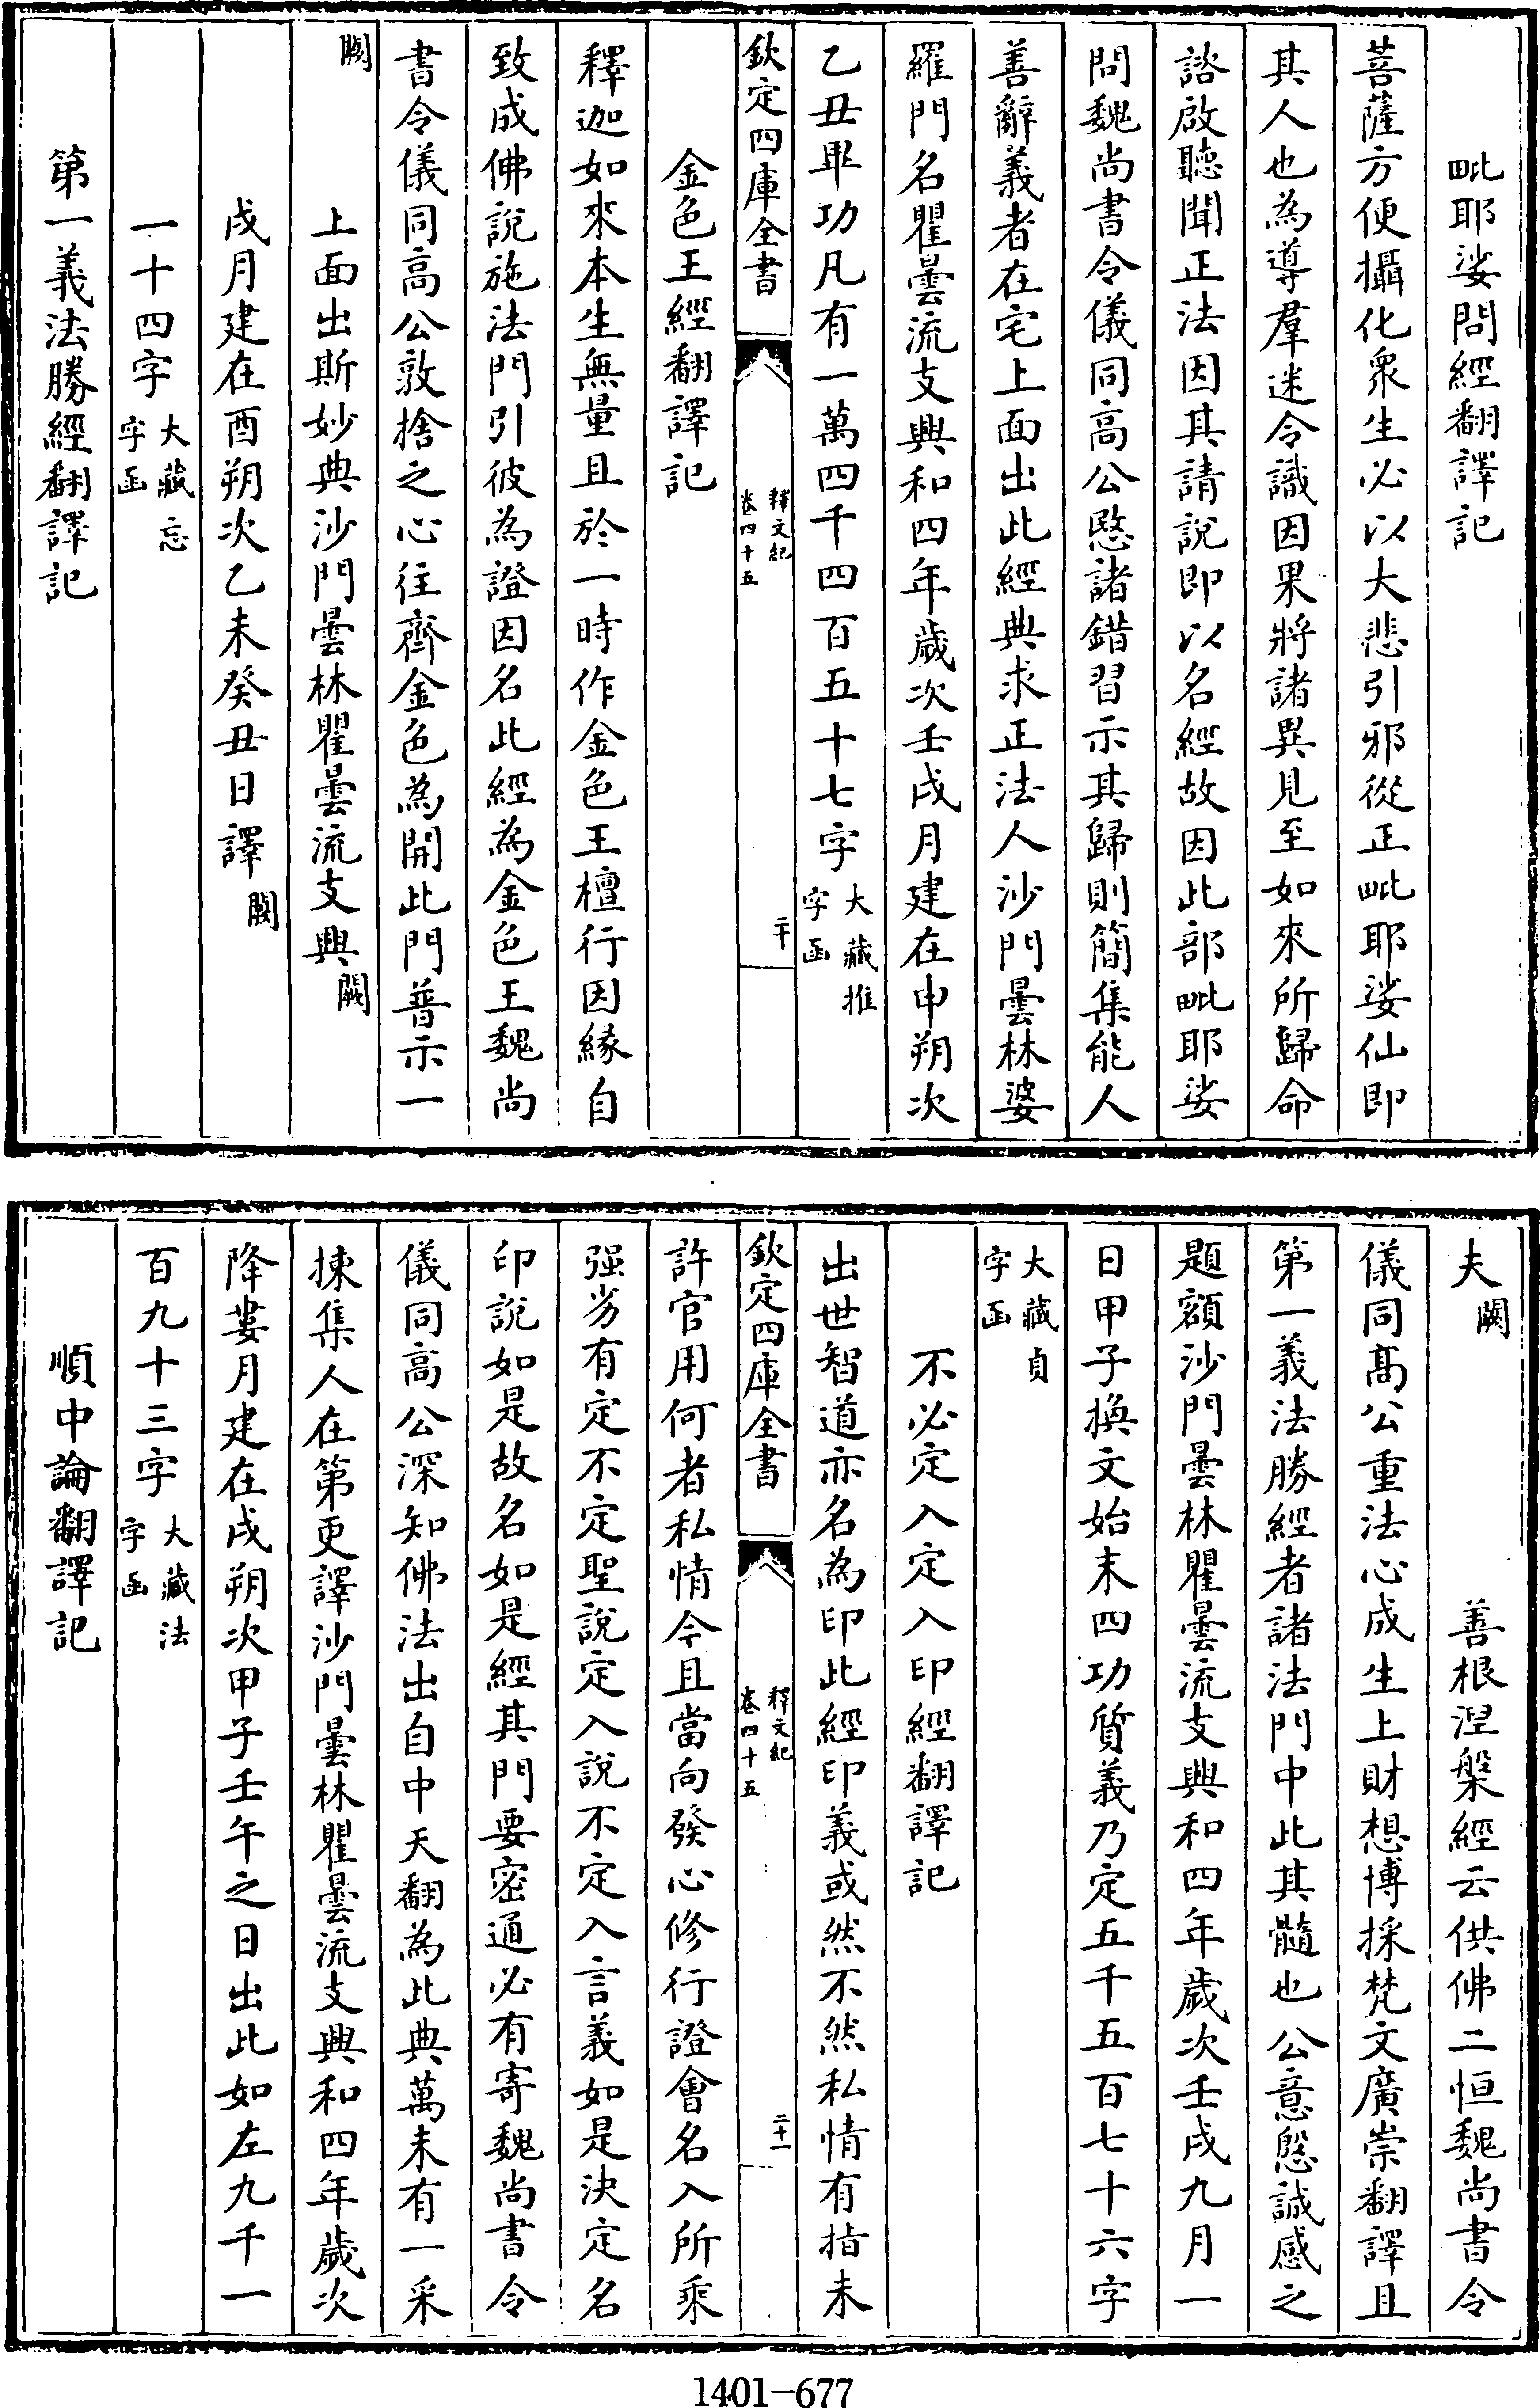 毗耶娑問經翻譯記
菩薩方便攝化衆生必以大悲引邪從正毗耶娑仙即
其人也為導羣迷令識因果將諸異見至如來所歸命
諮啟聽聞正法因其請說即以名經故因此部毗耶娑
問魏尚書令儀同高公愍諸錯習示其歸則簡集能人
善辭義者在宅上面出此經典求正法人沙門曇林婆
羅門名瞿曇流支興和四年歲次壬戌月建在申朔次
乙丑畢功凡有一萬四千四百五十七字大藏推字函
欽定四庫全書
釋文紀
卷四十五
二十
金色王經翻譯記
釋迦如來本生無量且於一時作金色王檀行因緣自
致成佛說施法門引彼為證因名此經為金色王魏尚
書令儀同高公敦捨之心往齊金色為開此門普示一
闕
上面出斯妙典沙門曇林瞿曇流支興闕
戌月建在酉朔次乙未癸丑日譯闕
一十四字大藏忘字函
第一義法勝經翻譯記
夫闕
善根涅槃經云供佛二恒魏尚書令
儀同高公重法心成生上財想博採梵文廣崇翻譯且
第一義法勝經者諸法門中此其髓也公意慇誠感之
題額沙門曇林瞿曇流支興和四年歲次壬戌九月一
日甲子換文始末四功質義乃定五千五百七十六字
大藏貞字函
不必定入定入印經翻譯記
出世智道亦名為印此經印義或然不然私情有指未
欽定四庫全書
釋文紀
卷四十五
二十一
許官用何者私情今且當向發心修行證會名入所乘
强劣有定不定聖說定入說不定入言義如是決定名
印說如是故名如是經其門要密通必有寄魏尚書令
儀同高公深知佛法出自中天翻為此典萬未有一采
揀集人在第更譯沙門曇林瞿曇流支興和四年歲次
降婁月建在戌朔次甲子壬午之日出此如左九千一
百九十三字大藏法字函
順中論翻譯記
1401-677